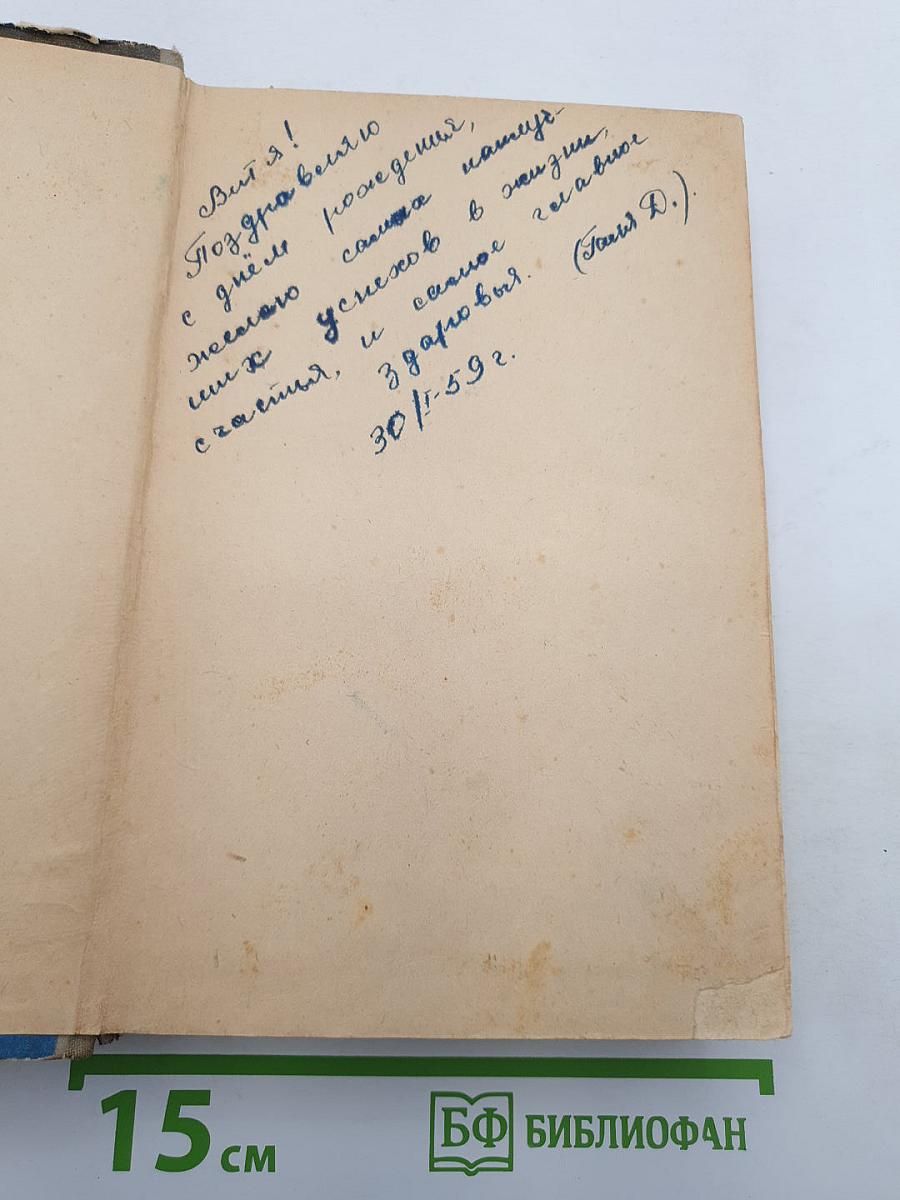 Витя!
Поздравляю
с днём рождения,
желаю самых наилуч-
ших успехов в жизни,
счастья, и самое главное
здаровья. (Галя Д.).
30/I-59г.
15 см
БФ БИБЛИОФАН